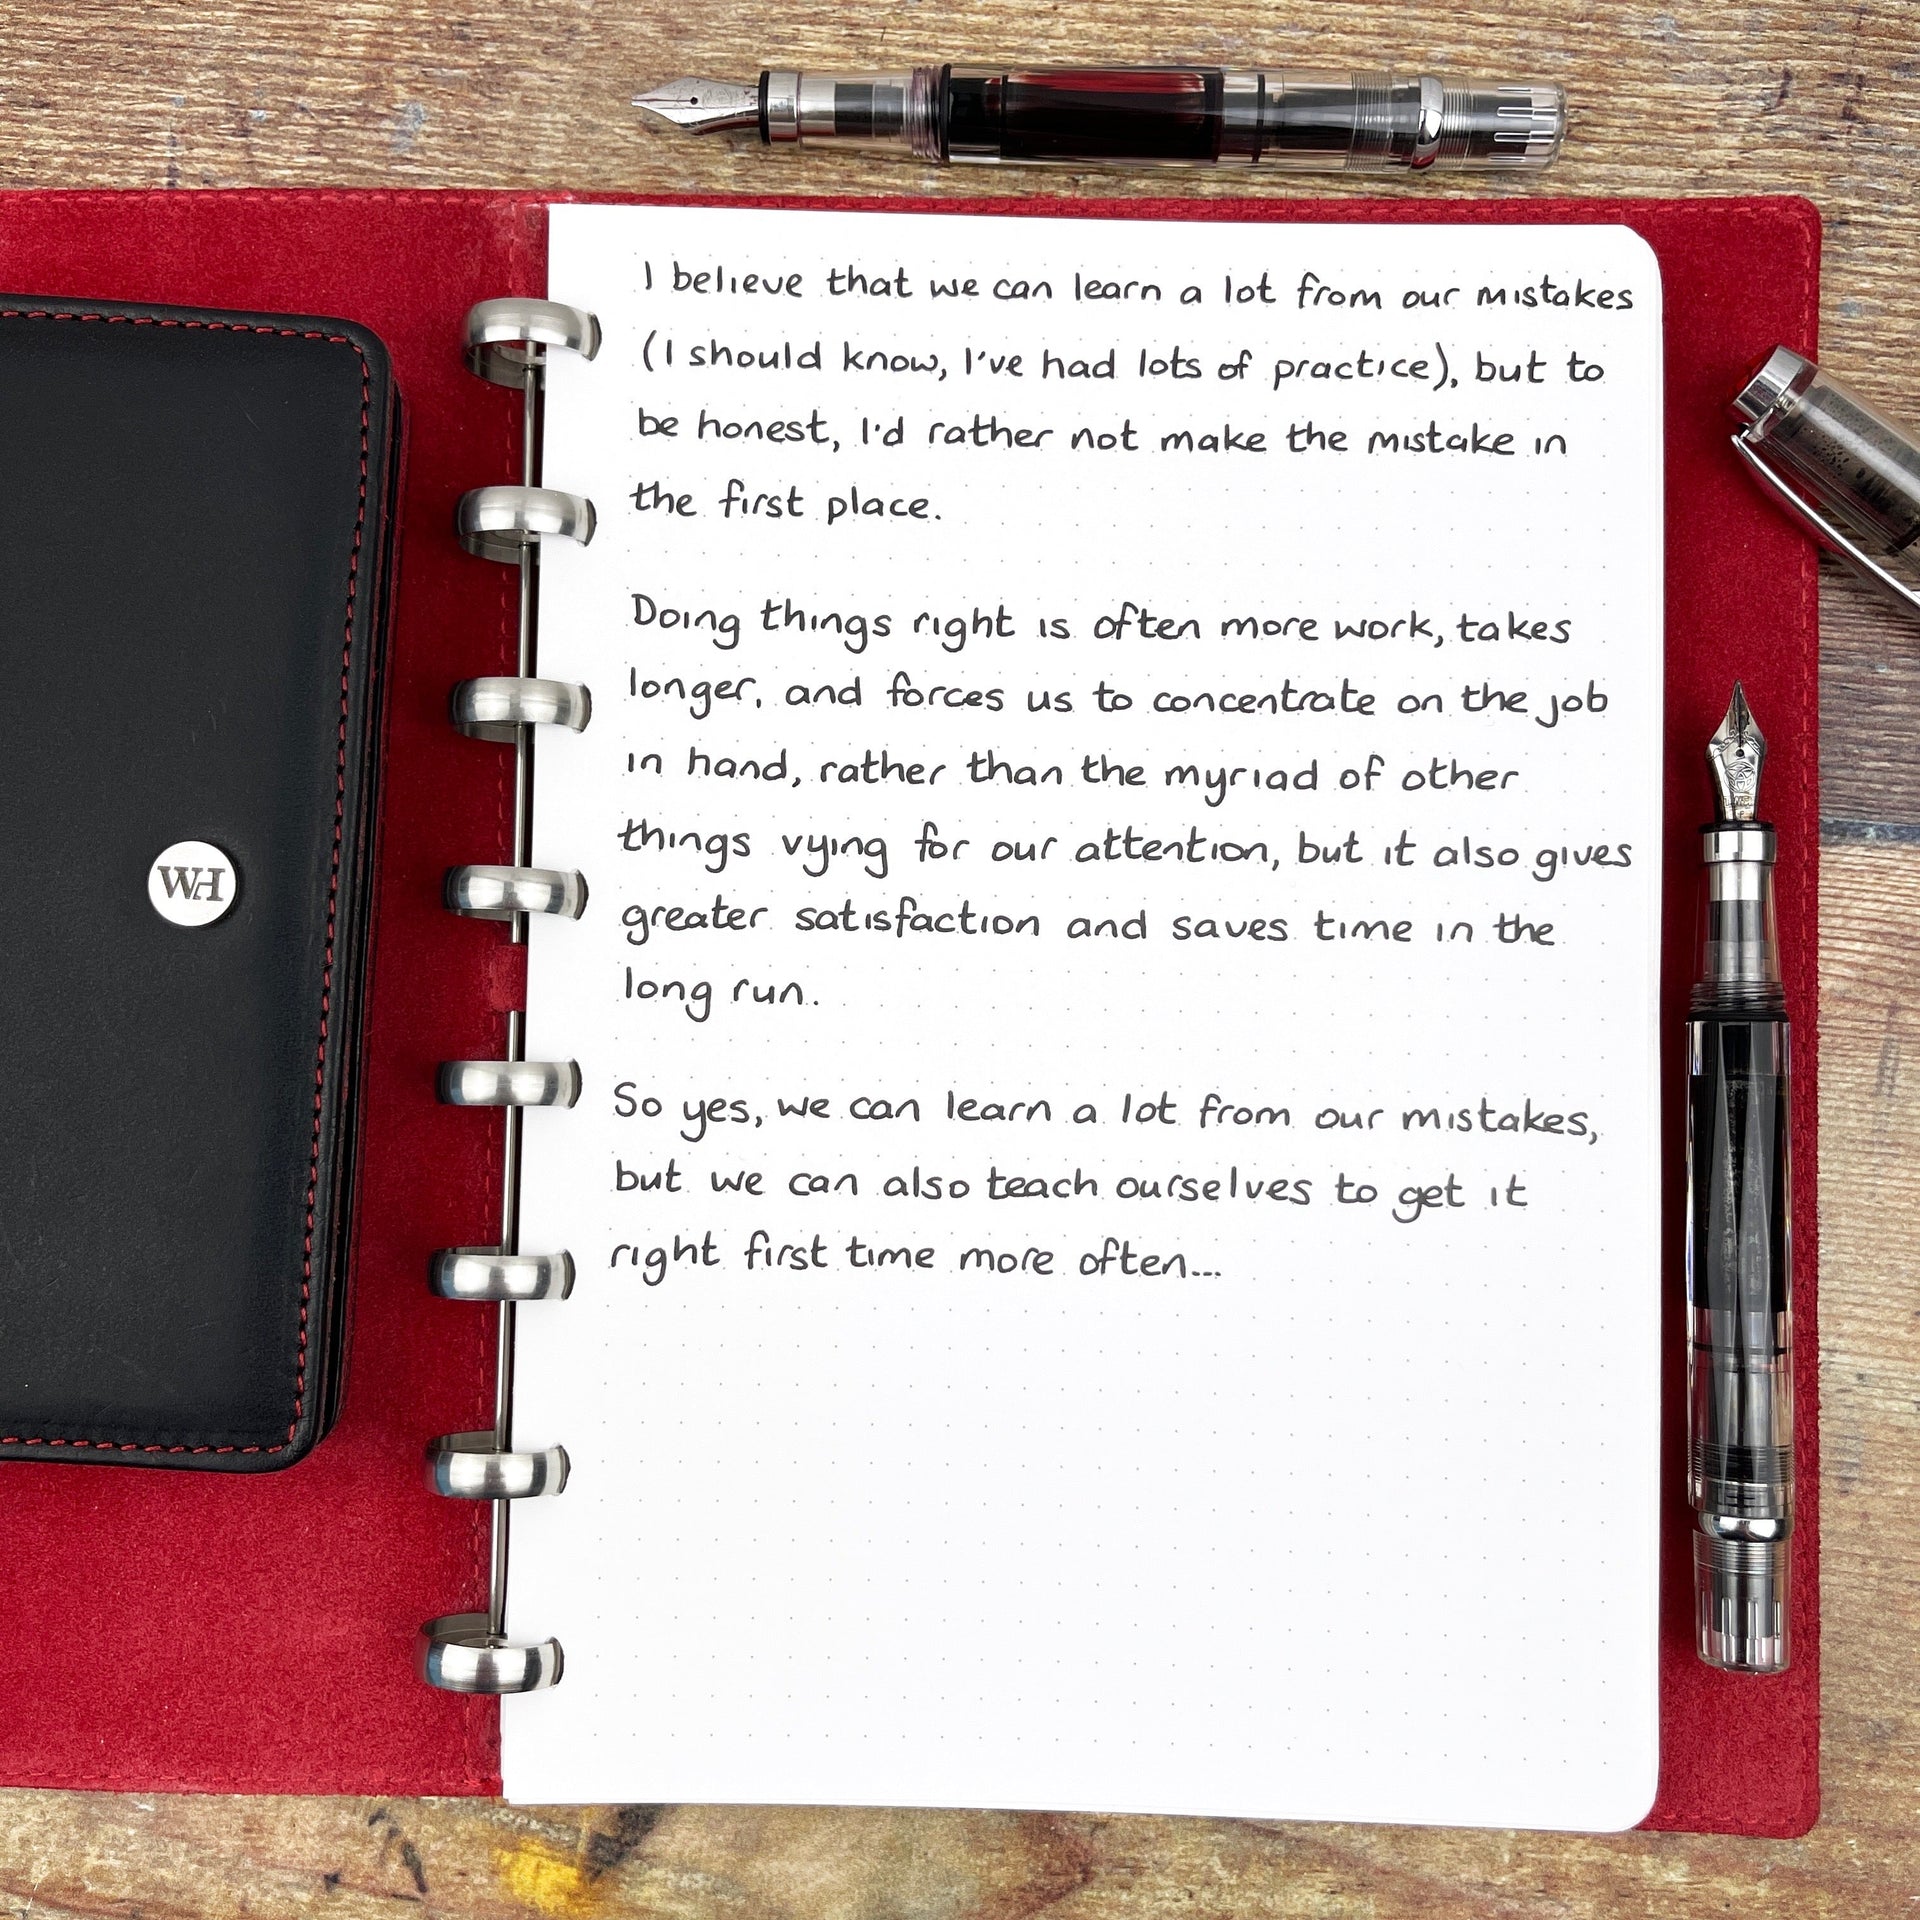 I believe that we can learn a lot from our mistakes
(I should know, I've had lots of practice), but to
be honest, I'd rather not make the mistake in
the first place.
Doing things right is often more work, takes
longer, and forces us to concentrate on the job
in hand, rather than the myriad of other
things vying for our attention, but it also gives
greater satisfaction and saves time in the
long run.
So yes, we can learn a lot from our mistakes,
but we can also teach ourselves to get it
right first time more often...
WH